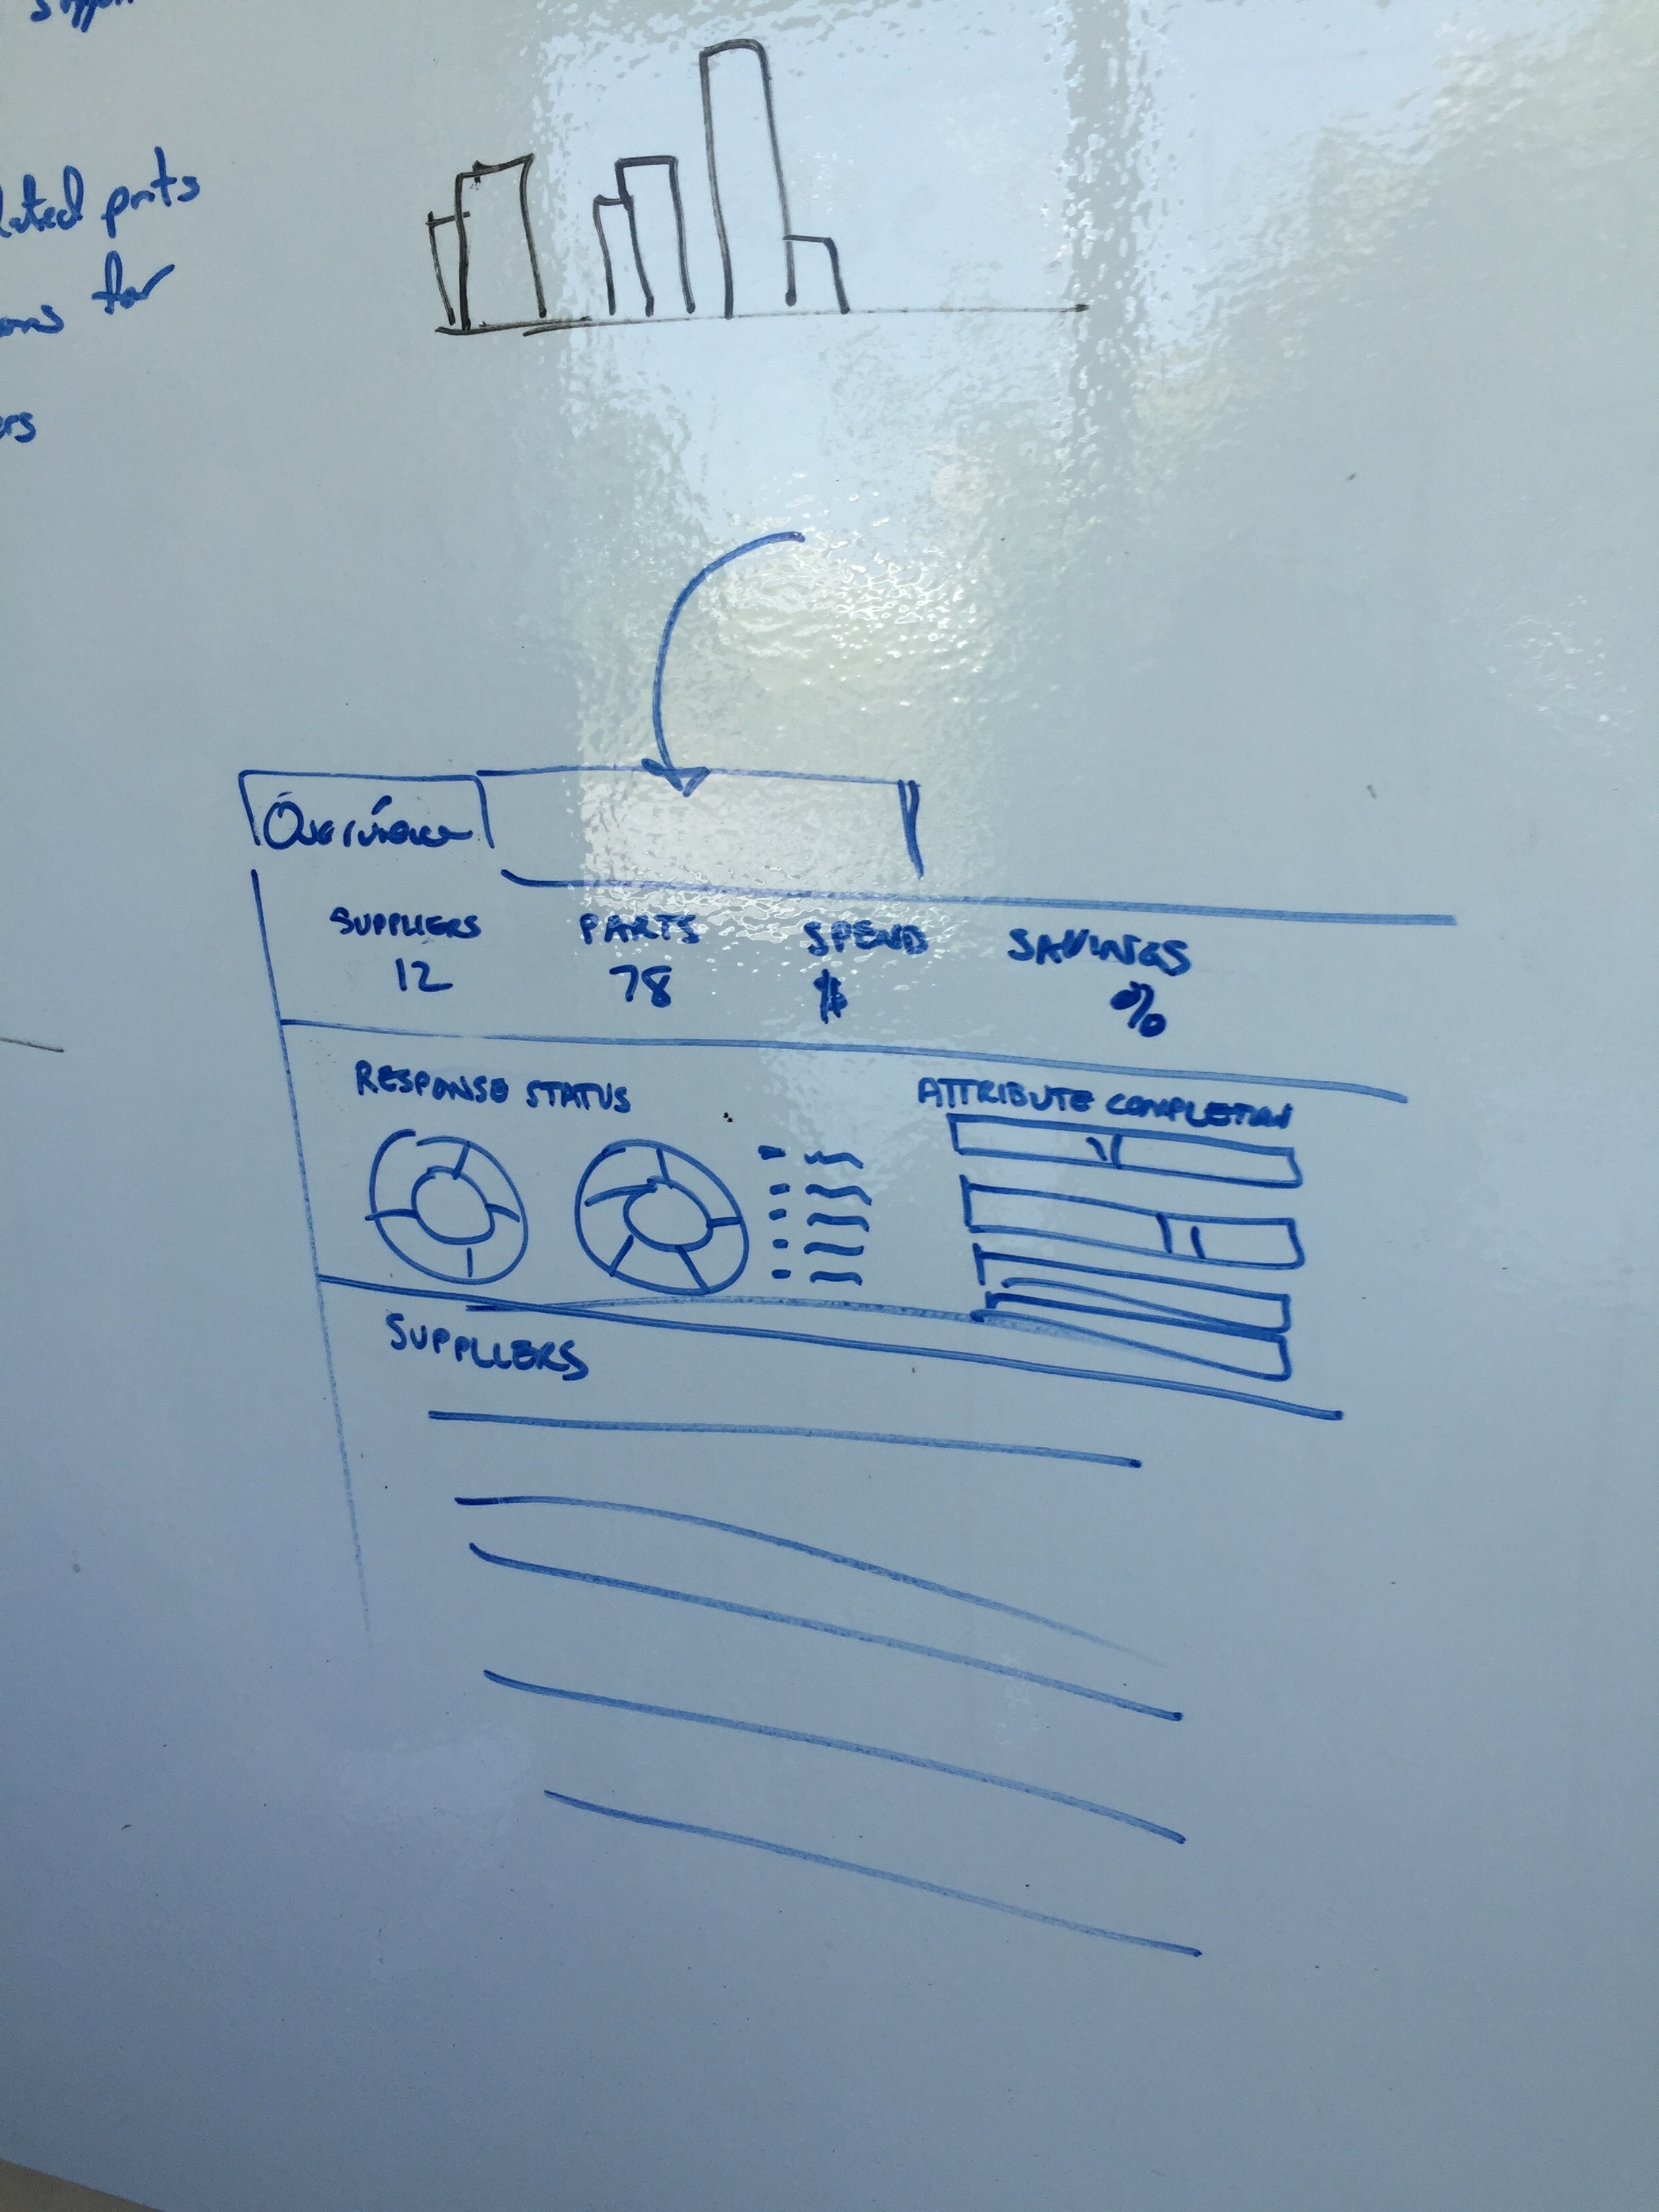 parts
for
Overview
SUPPLIERS PARTS SPEND SAVINGS
12 78 $ %
RESPONSE STATUS ATTRIBUTE COMPLETION
SUPPLIERS